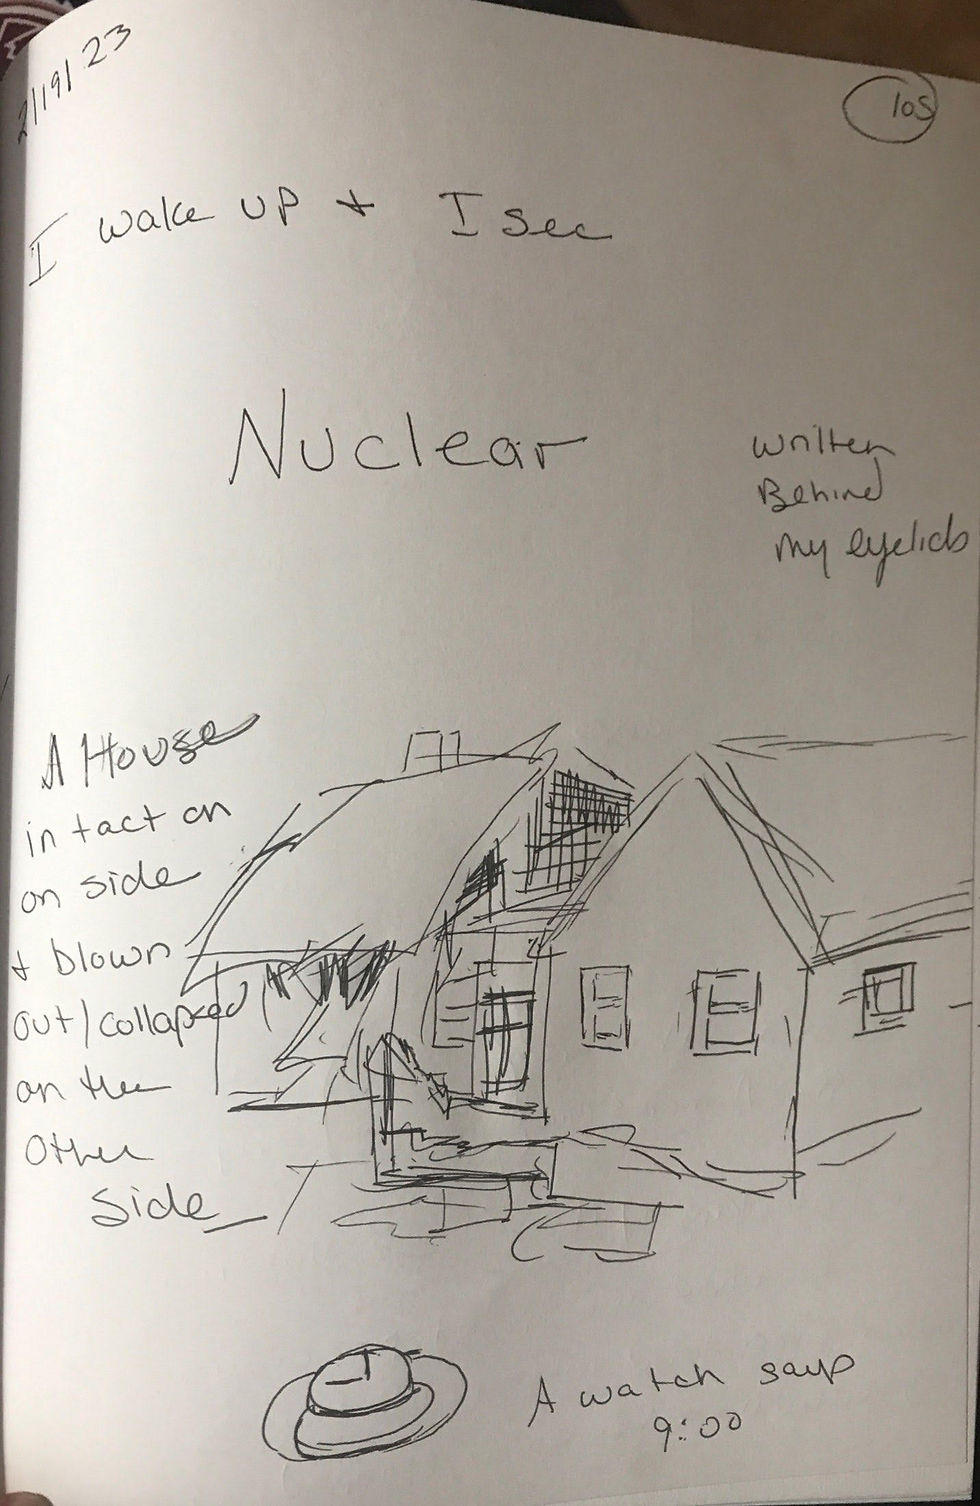 2/19/23
105
I wake up + I see
Nuclear
written
Behind
my eyelids
A House
in tact on
on side
+ blown
out/collapsed
on the
other
side
A watch says
9:00